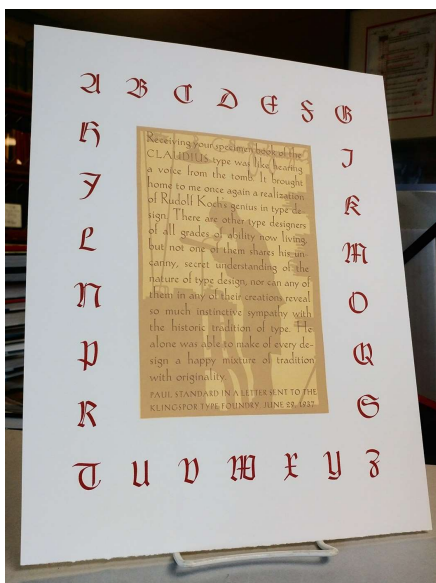 A B C D E F G
H I
J K
L M
N O
P Q
R S
T U V W X Y Z
Receiving your specimen book of the
CLAUDIUS type was like hearing
a voice from the tomb. It brought
home to me once again a realization
of Rudolf Koch's genius in type de-
sign. There are other type designers
of all grades of ability now living,
but not one of them shares his un-
canny, secret understanding of the
nature of type design, nor can any of
them in any of their creations reveal
so much instinctive sympathy with
the historic tradition of type. He
alone was able to make of every de-
sign a happy mixture of tradition
with originality.
PAUL STANDARD IN A LETTER SENT TO THE
KLINGSPOR TYPE FOUNDRY, JUNE 29, 1937